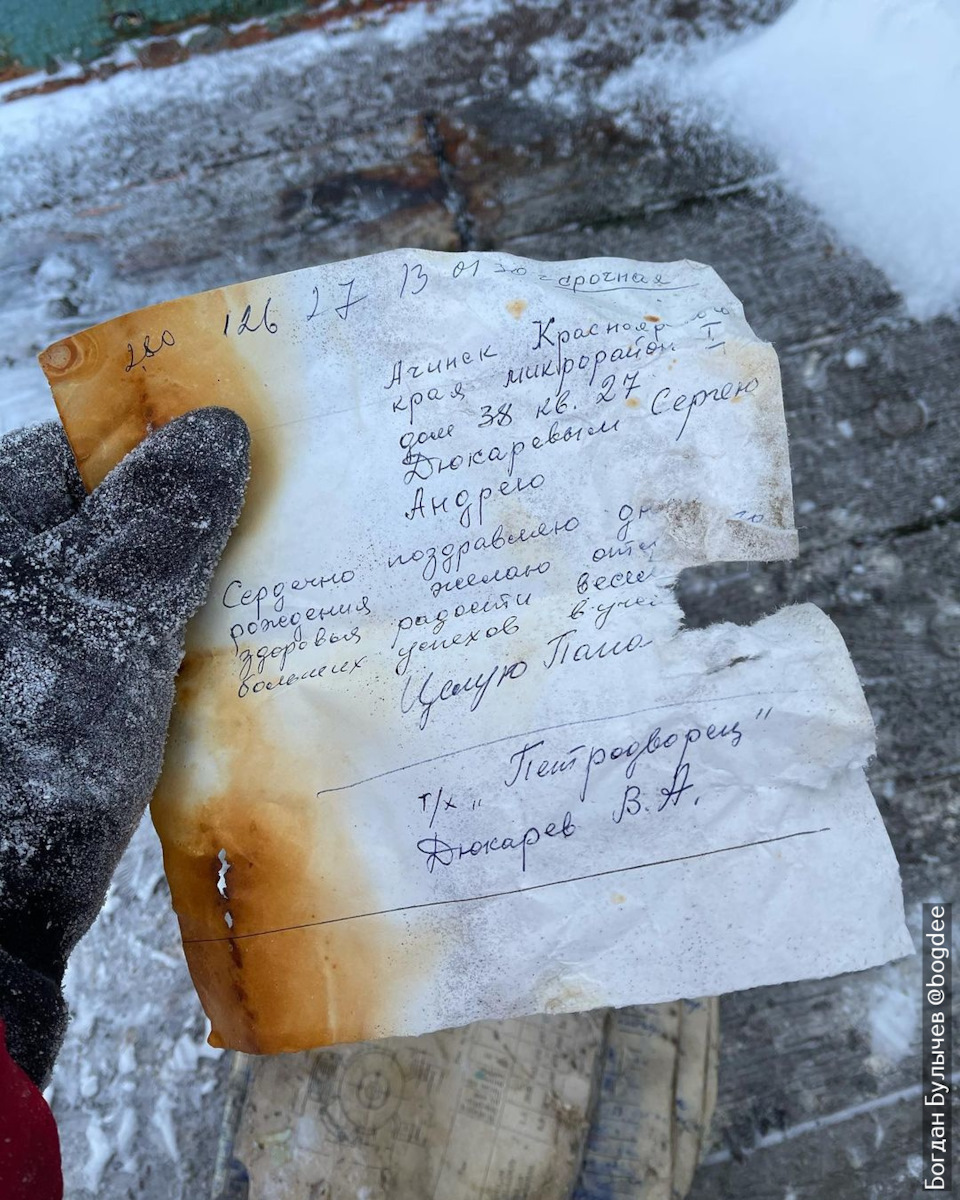 280 126 27 13 01 30 = срочная
Ачинск Краснояр ого
края микрорайон I
дом 38 кв. 27
Дюкаревым Сергею
Андрею
Сердечно поздравляю дн
рождения желаю отл
здоровья радости весел
больших успехов в уче
Целую Папа
т/х „Петродворец"
Дюкарев В.А.
Богдан Булычев @bogdee